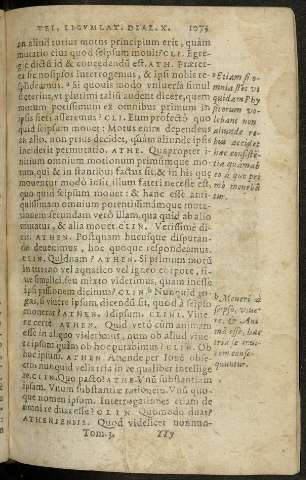 TEI, LEGVM LAT. DIAL. X. 1073
an aliud totius motus principium erit, quàm
mutatio eius quod seipsum mouit? CLI. Egre-
gie dictū id & concedendū est. ATH. Præter-
ea sic nosipsos interrogemus, & ipsi nobis re-
spōdeamus. Si quouis modo vniuersa simul
steterint, vt plurimi talīu audent dicere, quem
motum potissimum ex omnibus primum in
ipsis fieri asseremus? CLI. Eum profectò quo
quid seipsum mouet: Motus enim dependens
ex alio, non prius decidet, quàm aliunde ipsis
inciderit permutatio. ATHE. Quapropter i-
nitium omnium motionum primumque mo-
tum, qui & in stantibus factus sit, & in his quæ
mouentur modò insit, illum fateri necesse est,
quo quid seipsum mouet: & hanc esse anti-
quissimam omnium potentissimamque muta-
tionem: secundam verò illam, qua quid ab alio
mutatur, & alia mouet. CLIN. Verissimè di-
cis. ATHEN. Postquam hucusque disputan-
do deuenimus, hoc quoque respondeamus.
CLIN. Quidnam? ATHEN. Si primum motū
in terreno vel aquatico vel igneo corpore, si-
ue simplici, seu mixto viderimus, quam inesse
ipsi passionem dicimus? CLIN. Nunquid ro-
gas, b viuere ipsum, dicendū sit, quod à seipso
mouetur? ATHEN. Idipsum. CLINI. Viue-
re certè. ATHEN. Quid verò cùm animam
esse in aliquo viderimus, num ob aliud viue-
re ipsum quàm ob hoc perhibemus? CLIN. Ob
hoc ipsum. ATHEN. Attende per Iouē obse-
cro nunquid velis tria in re qualibet intellige-
re. CLIN. Quo pacto? ATHE. Vnū substantiam
ipsam. Vnum substantiæ rationem. Vnū quo-
que nomen ipsum. Interrogationes etiam de
omni re duas esse? CLIN. Quomodo duas?
ATHENIENSIS. Quod videlicet nonnun-
Tom. 3.
a Etiam si o-
mnia stēt vt
quidam Phy
sicorum vo-
lebant non
aliunde
accidet
b Moueri à
seipso, viue
re, & Ani
mā esse, hæc